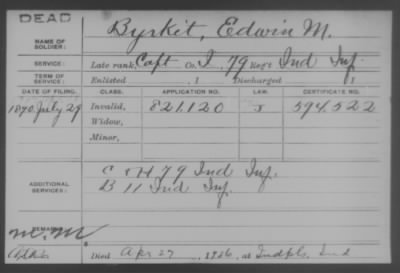 DEAD
NAME OF SOLDIER: Byrkit, Edwin M.
SERVICE: Late rank, Capt Co. I, 79 Reg't Ind Inf.
TERM OF SERVICE: Enlisted , 1 Discharged 1
DATE OF FILING. CLASS. APPLICATION NO. LAW. CERTIFICATE NO.
1890 July 29 Invalid, 821.120 594.522
Widow,
Minor,
ADDITIONAL SERVICES: C & H 79 Ind Inf.
B 11 Ind Inf.
REMARKS:
Died Apr 27, 1926, at Indpls. Ind